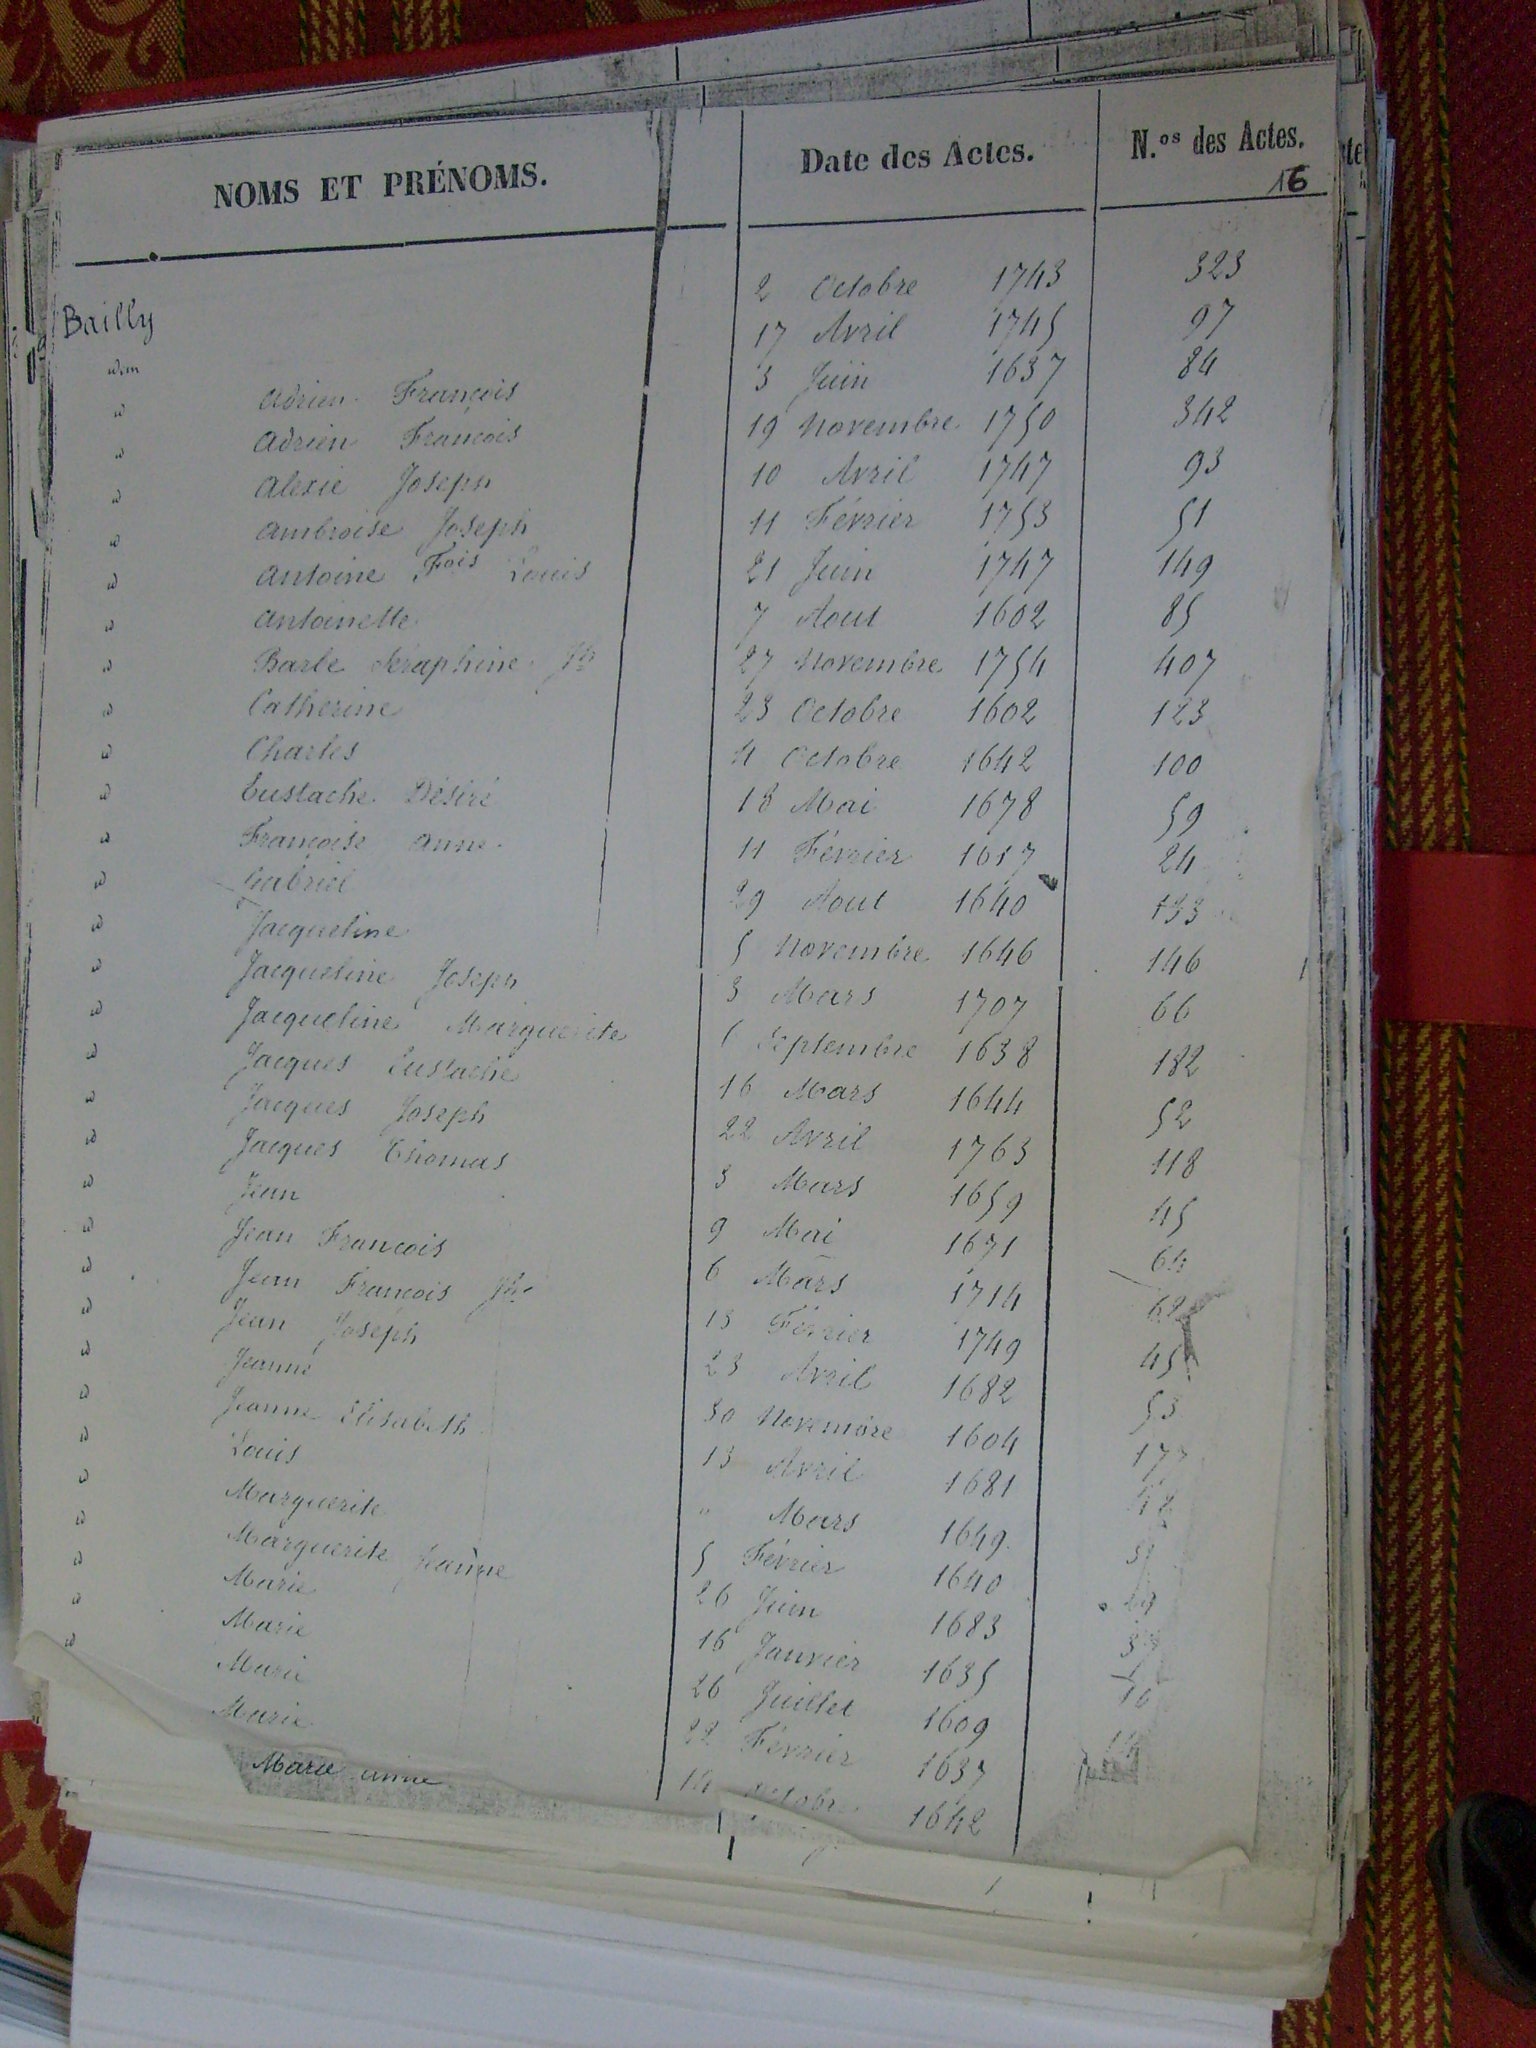 NOMS ET PRÉNOMS. Date des Actes. N.os des Actes.
16
Bailly 2 Octobre 1743 323
idem Adrien François 17 Avril 1745 97
id Adrien François 3 Juin 1637 84
id Alexie Joseph 19 Novembre 1750 342
id Ambroise Joseph 10 Avril 1747 93
id Antoine Fois Louis 11 Février 1753 51
id Antoinette 21 Juin 1747 149
id Barbe Séraphine Jh 7 Aout 1602 85
id Catherine 27 Novembre 1754 407
id Charles 23 Octobre 1602 123
id Eustache Désiré 4 Octobre 1642 100
id Françoise Anne 18 Mai 1678 59
id Gabriel 11 Février 1617 24
id Jacqueline 29 Aout 1640 133
id Jacqueline Joseph 5 Novembre 1646 146
id Jacqueline Marguerite 3 Mars 1707 66
id Jacques Eustache Septembre 1638 182
id Jacques Joseph 16 Mars 1644 52
id Jacques Thomas 22 Avril 1763 118
id Jean 3 Mars 1659 45
id Jean François 9 Mai 1671 64
id Jean François Jh 6 Mars 1714 62
id Jean Joseph 13 Février 1749 45
id Jeanne 23 Avril 1682 53
id Jeanne Elisabeth 30 Novembre 1604 177
id Louis 13 Avril 1681
id Marguerite " Mars 1649
id Marguerite Jeanne 5 Février 1640
id Marie 26 Juin 1683
id Marie 16 Janvier 1635
id Marie 26 Juillet 1609
id Marie 22 Février 1637
Marie Anne 14 Octobre 1642